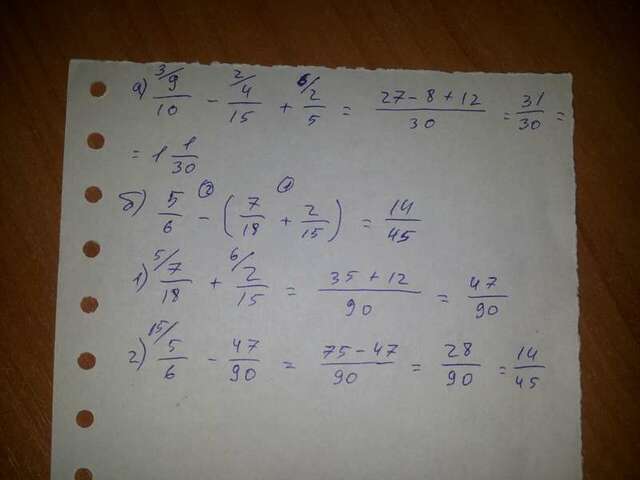 а) 3/ 9/10 - 2/ 4/15 + 6/ 2/5 = (27 - 8 + 12)/30 = 31/30 =
= 1 1/30
б) 5/6 - (7/18 + 2/15) = 14/45 ② ①
1) 5/ 7/18 + 6/ 2/15 = (35 + 12)/90 = 47/90
2) 15/ 5/6 - 47/90 = (75 - 47)/90 = 28/90 = 14/45